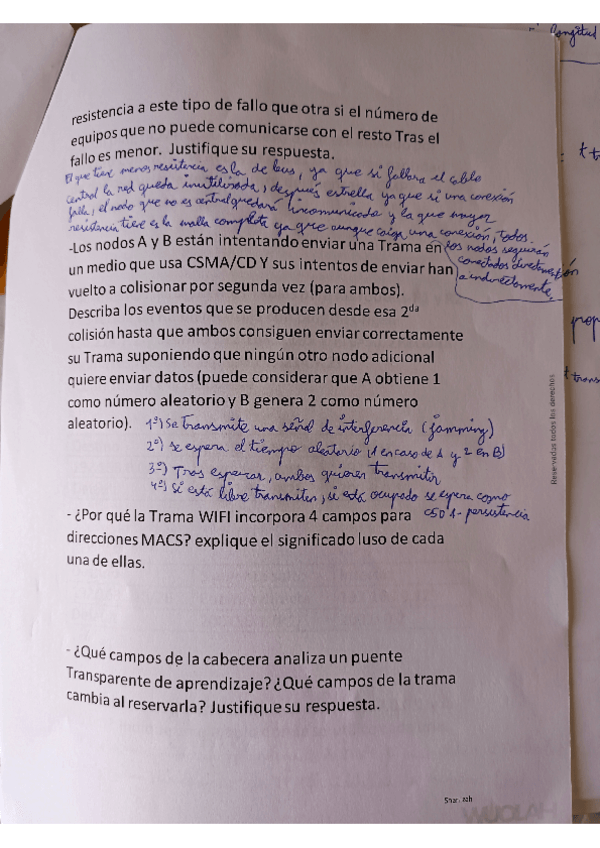 longitud
resistencia a este tipo de fallo que otra si el número de
equipos que no puede comunicarse con el resto Tras el
fallo es menor. Justifique su respuesta.
El que tiene menos resistencia es la de bus, ya que si fallara el cable
central la red queda inutilizada, después estrella ya que si una conexión
falla, el nodo que no es central quedará incomunicado y la que mayor
resistencia tiene es la malla completa ya que aunque caiga una conexión, todos
los nodos seguirán
conectados directa
o indirectamente.
-Los nodos A y B están intentando enviar una Trama en
un medio que usa CSMA/CD Y sus intentos de enviar han
vuelto a colisionar por segunda vez (para ambos).
Describa los eventos que se producen desde esa 2da
colisión hasta que ambos consiguen enviar correctamente
su Trama suponiendo que ningún otro nodo adicional
quiere enviar datos (puede considerar que A obtiene 1
como número aleatorio y B genera 2 como número
aleatorio).
1º) Se transmite una señal de interferencia (jamming)
2º) Se espera el tiempo aleatorio (1 en caso de A y 2 en B)
3º) Tras esperar, ambos quieren transmitir
4º) Si está libre transmiten, si está ocupado se espera como
CSD 1-persistencia
- ¿Por qué la Trama WIFI incorpora 4 campos para
direcciones MACS? explique el significado luso de cada
una de ellas.
- ¿Qué campos de la cabecera analiza un puente
Transparente de aprendizaje? ¿Qué campos de la trama
cambia al reservarla? Justifique su respuesta.
Reservados todos los derechos
WUOLAH